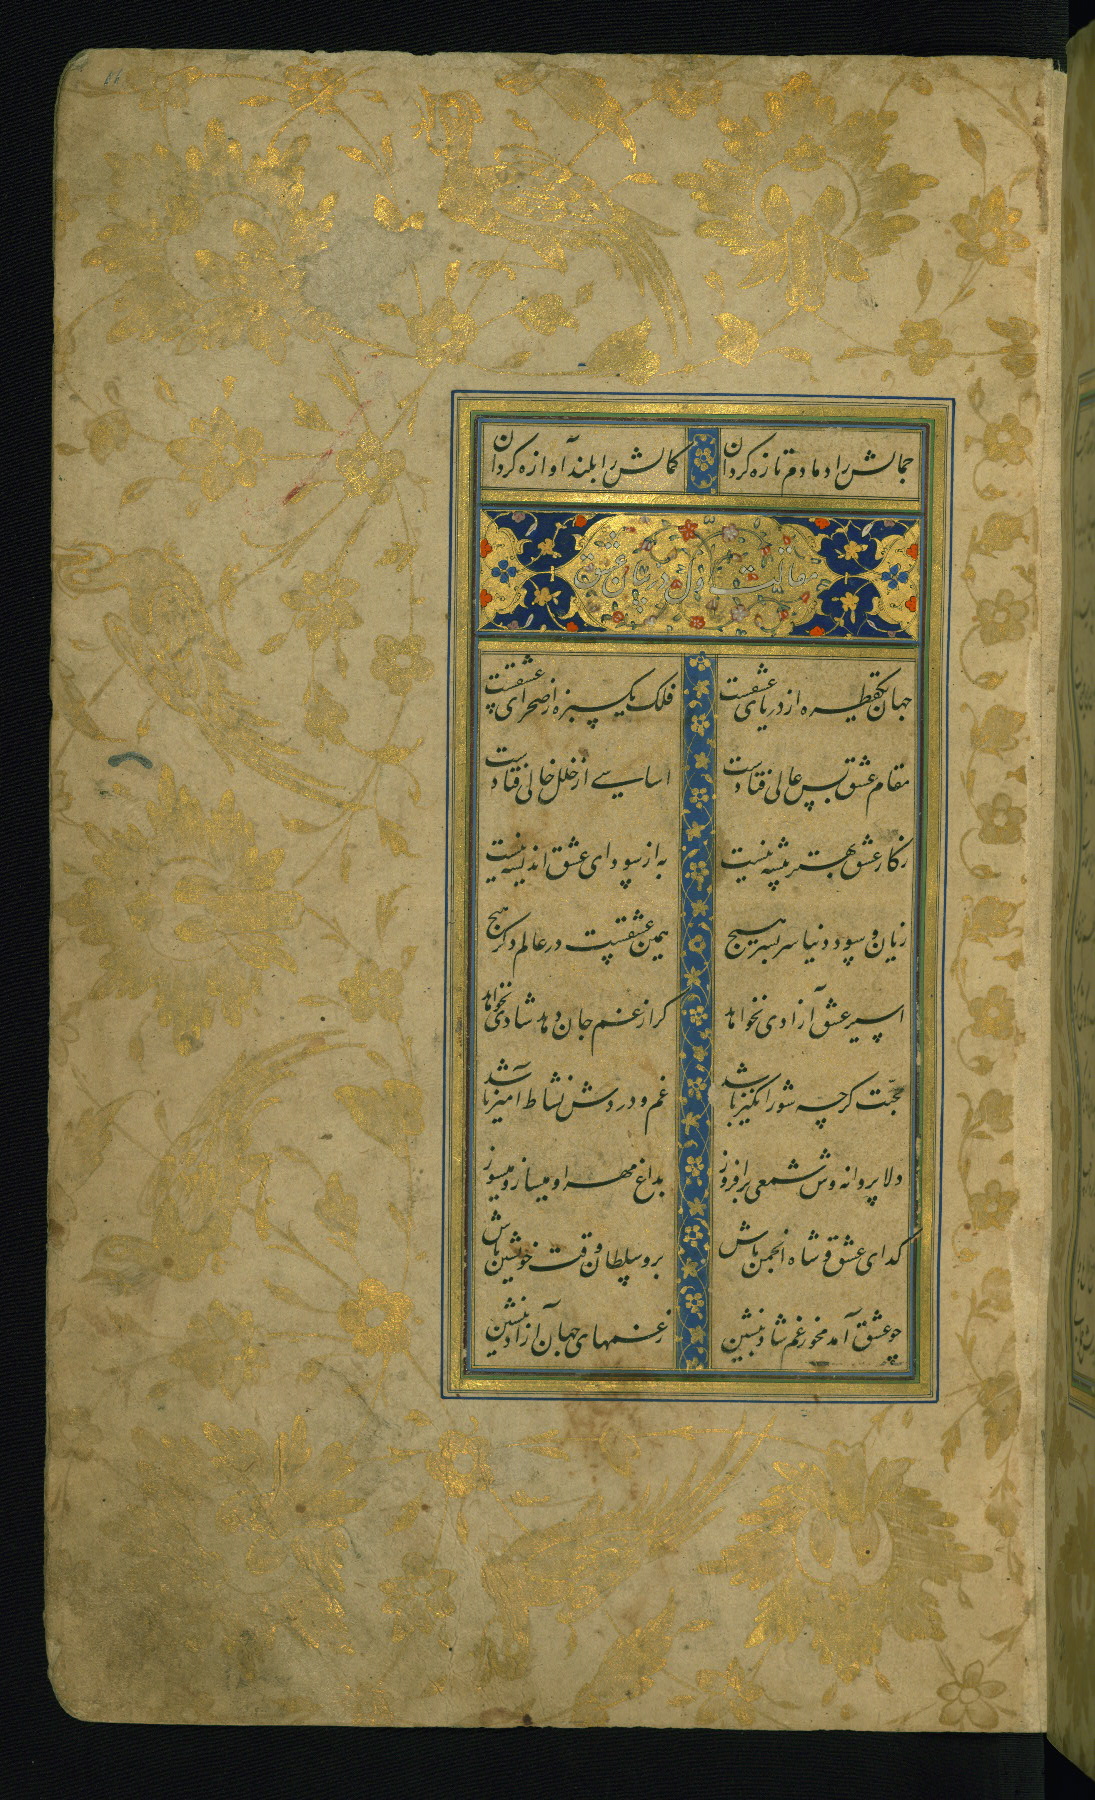 جمالش را دمادم تازه کردان کمالش را بلند آوازه کردان
مقالت اول در بیان عشق
جهان یکقطره از دریای عشقست فلک یک سبزه از صحرای عشقست
مقام عشق بس عالی فتادست اساسی از خلل خالی فتادست
ز کار عشق بهتر پیشه نیست به از سودای عشق اندیشه نیست
زیان و سود دنیا سربسر هیچ همین عشقست در عالم دکر هیچ
اسیر عشق آزادی نخواهد کر از غم جان دهد شادی نخواهد
محبّت کرچه شورانکیز باشد غم و دردش نشاط آمیز باشد
دلا پروانه وش شمعی برافروز بداغ مهر او میساز و میسوز
کدای عشق و شاه انجمن باش برو سلطان وقت خویشتن باش
چو عشق آمد مخور غم شاد بنشین ز غمهای جهان آزاد بنشین